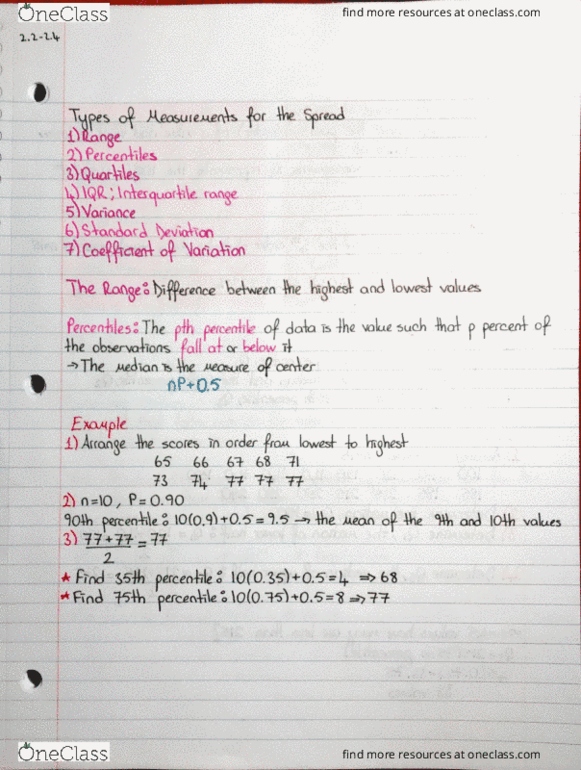 OneClass
find more resources at oneclass.com
2.2-2.4
Types of Measurements for the Spread
1) Range
2) Percentiles
3) Quartiles
4) IQR; Interquartile range
5) Variance
6) Standard Deviation
7) Coefficient of Variation
The Range: Difference between the highest and lowest values
Percentiles: The pth percentile of data is the value such that p percent of
the observations fall at or below it
→ The median is the measure of center
nP+0.5
Example
1) Arrange the scores in order from lowest to highest
65 66 67 68 71
73 74 77 77 77
2) n=10, P=0.90
90th percentile: 10(0.9)+0.5=9.5 → the mean of the 9th and 10th values
3) 77+77 = 77
2
★ Find 35th percentile: 10(0.35)+0.5=4 ⇒ 68
★ Find 75th percentile: 10(0.75)+0.5=8 ⇒ 77
OneClass
find more resources at oneclass.com